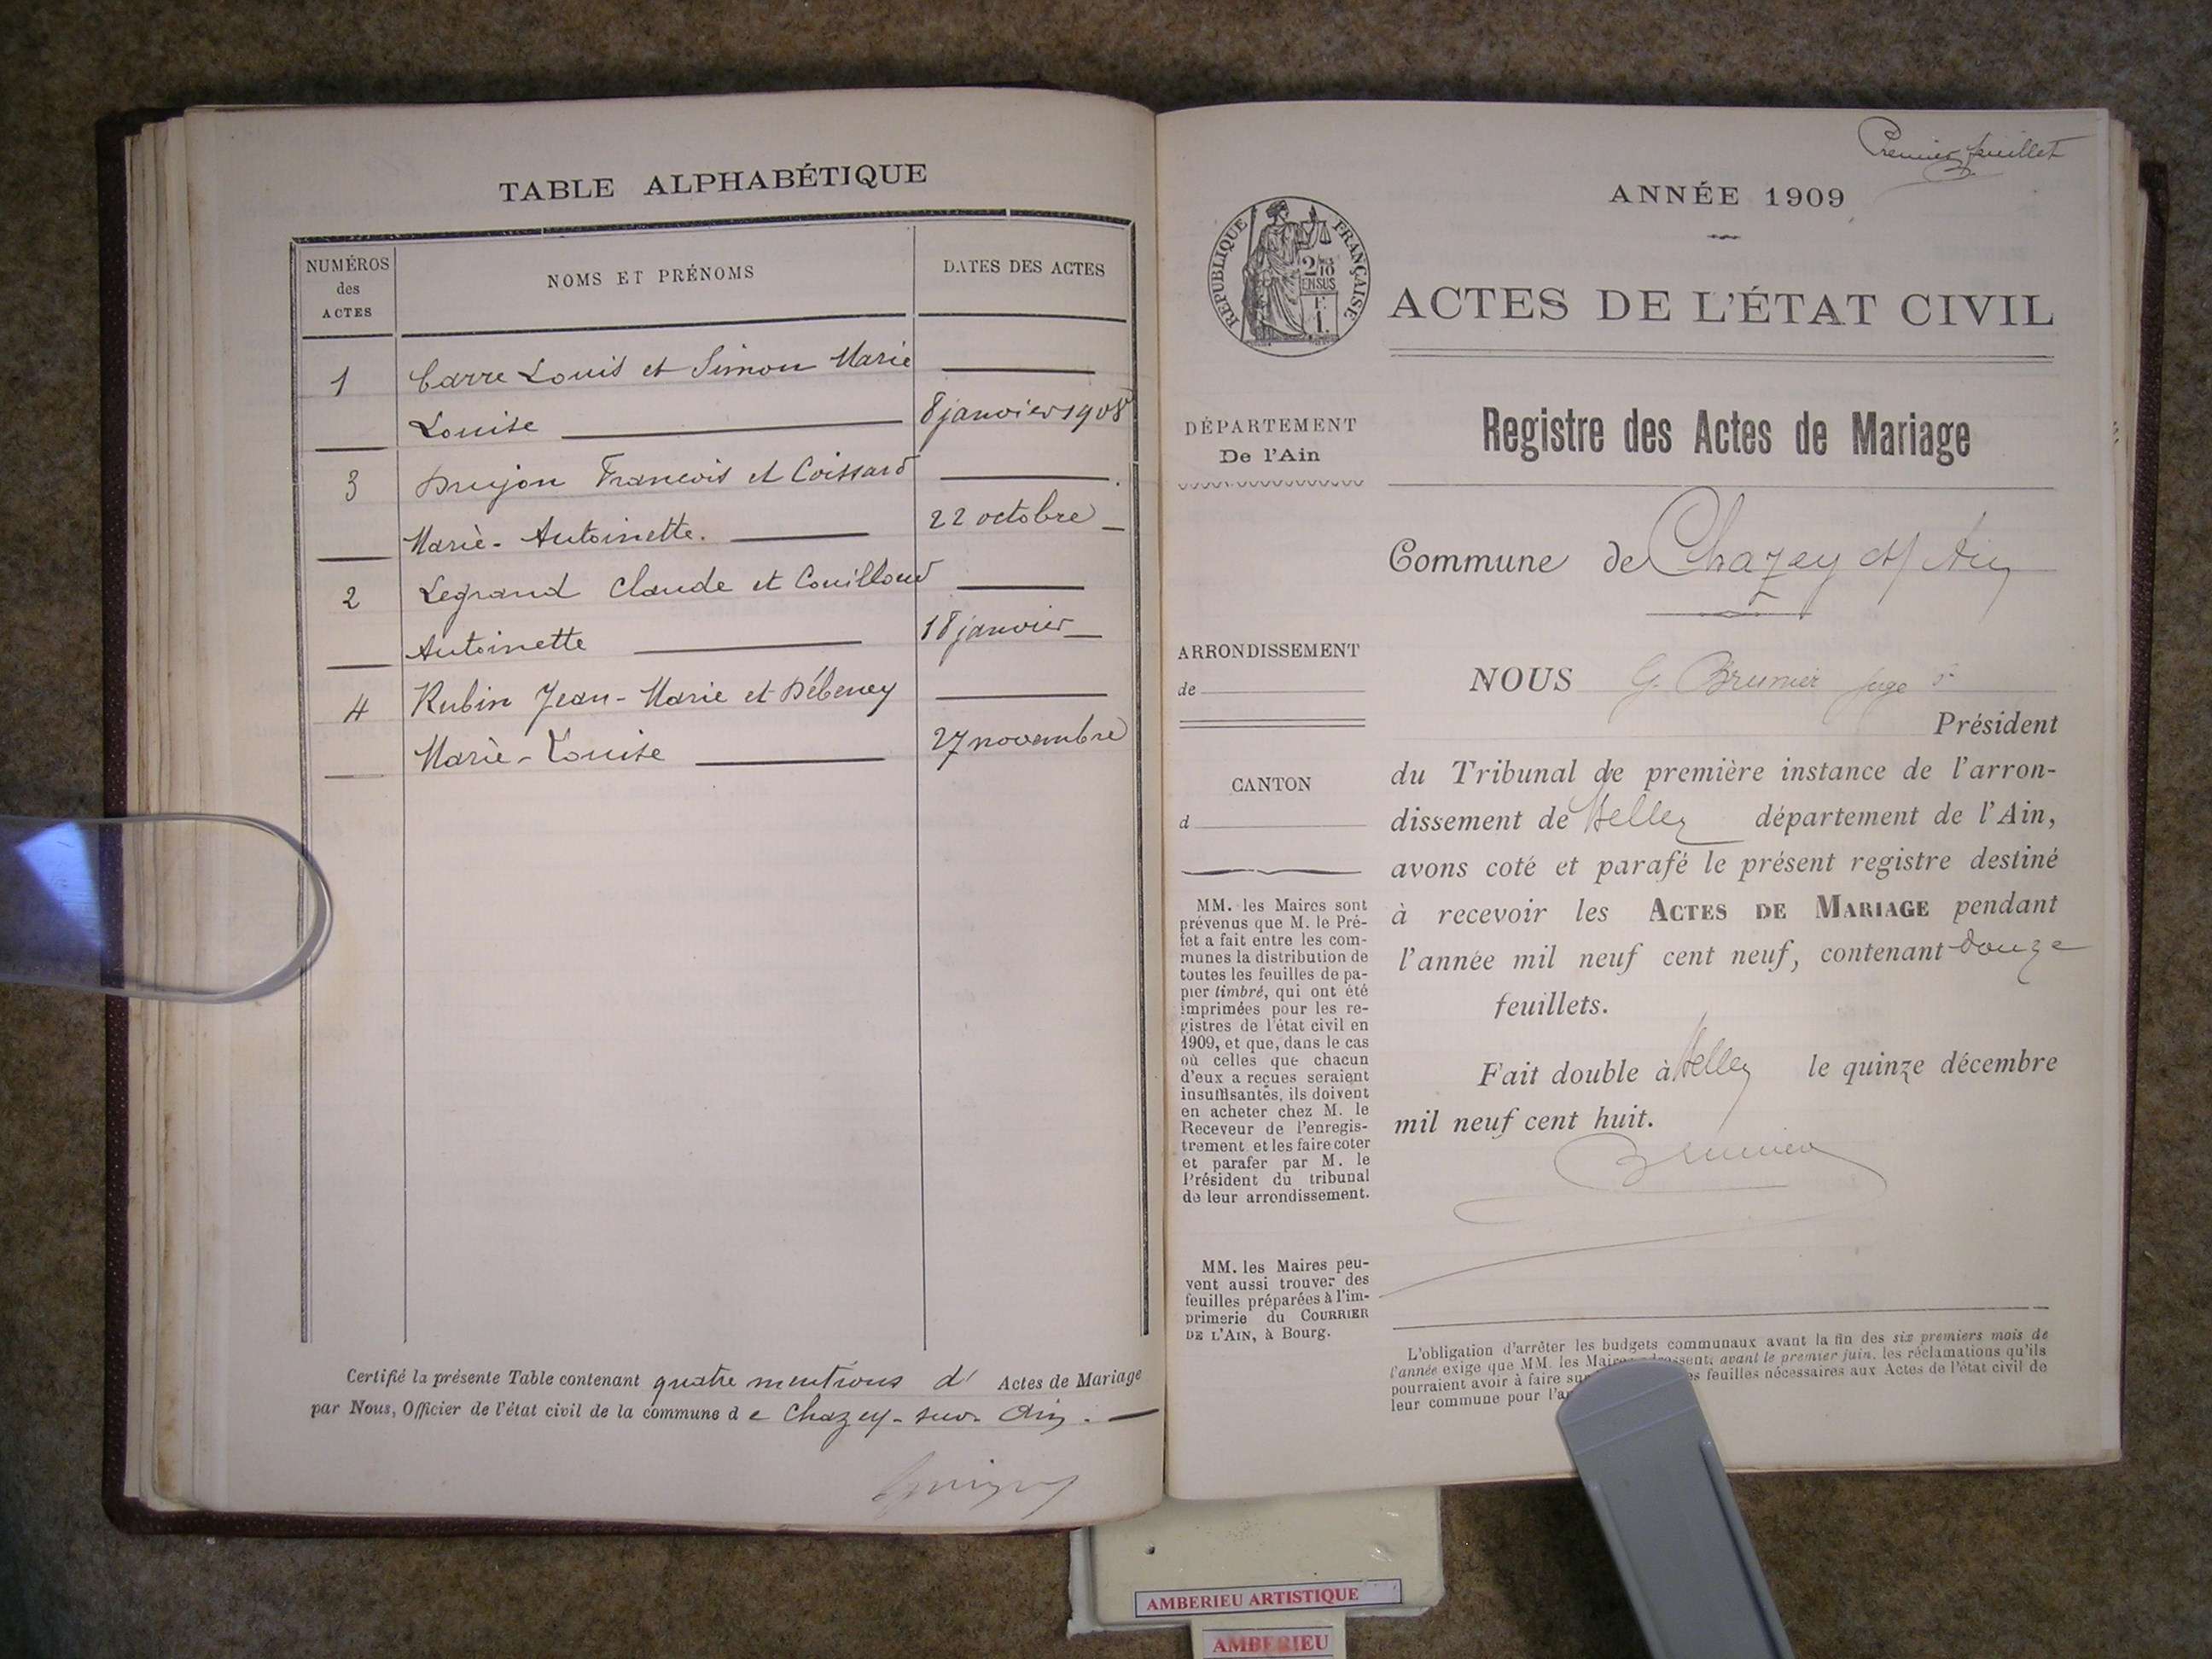 TABLE ALPHABÉTIQUE
NUMÉROS des ACTES
NOMS ET PRÉNOMS
DATES DES ACTES
1 Carre Louis et Simon Marie
Louise 8 janvier 1908
3 Drujon Francois et Coissard
Marie-Antoinette. 22 octobre
2 Legrand Claude et Couilloud
Antoinette 18 janvier
4 Rubin Jean-Marie et Débeney
Marie-Louise 27 novembre
Certifié la présente Table contenant quatre mentions d' Actes de Mariage
par Nous, Officier de l'état civil de la commune de Chazey-sur-Ain.
Premier feuillet
ANNÉE 1909
RÉPUBLIQUE FRANÇAISE
ACTES DE L'ÉTAT CIVIL
DÉPARTEMENT
De l'Ain
Registre des Actes de Mariage
Commune de Chazey s/ Ain
ARRONDISSEMENT
de
CANTON
d
NOUS G. Brunier juge
Président
du Tribunal de première instance de l'arron-
dissement de Belley département de l'Ain,
avons coté et parafé le présent registre destiné
à recevoir les ACTES DE MARIAGE pendant
l'année mil neuf cent neuf, contenant douze
feuillets.
Fait double à Belley le quinze décembre
mil neuf cent huit.
Brunier
MM. les Maires sont
prévenus que M. le Pré-
fet a fait entre les com-
munes la distribution de
toutes les feuilles de pa-
pier timbré, qui ont été
imprimées pour les re-
gistres de l'état civil en
1909, et que, dans le cas
où celles que chacun
d'eux a reçues seraient
insuffisantes, ils doivent
en acheter chez M. le
Receveur de l'enregis-
trement et les faire coter
et parafer par M. le
Président du tribunal
de leur arrondissement.
MM. les Maires peu-
vent aussi trouver des
feuilles préparées à l'im-
primerie du COURRIER
DE L'AIN, à Bourg.
L'obligation d'arrêter les budgets communaux avant la fin des six premiers mois de
l'année exige que MM. les avant le premier juin, les réclamations qu'ils
pourraient avoir à faire feuilles nécessaires aux Actes de l'état civil de
leur commune pour
AMBERIEU ARTISTIQUE
AMBERIEU